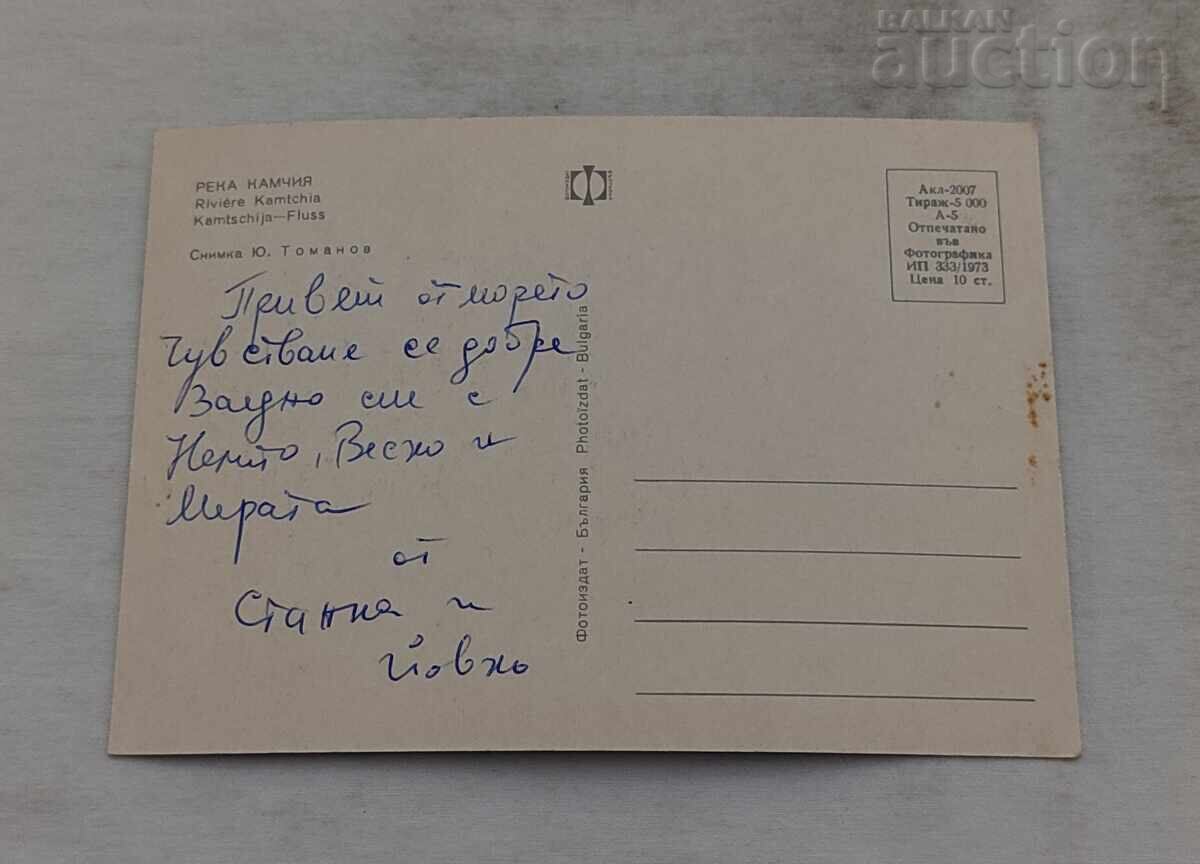 BALKAN
auction
РЕКА КАМЧИЯ
Rivière Kamtchia
Kamtschija—Fluss
Снимка Ю. Томанов
Привет от морето
Чувстваме се добре
Заедно сме с
Ненто, Веско и
Мерата
от
Станка и
Йовко
Фотоиздат - България Photoizdat - Bulgaria
Акл-2007
Тираж-5 000
А-5
Отпечатано
във
Фотографика
ИП 333/1973
Цена 10 ст.